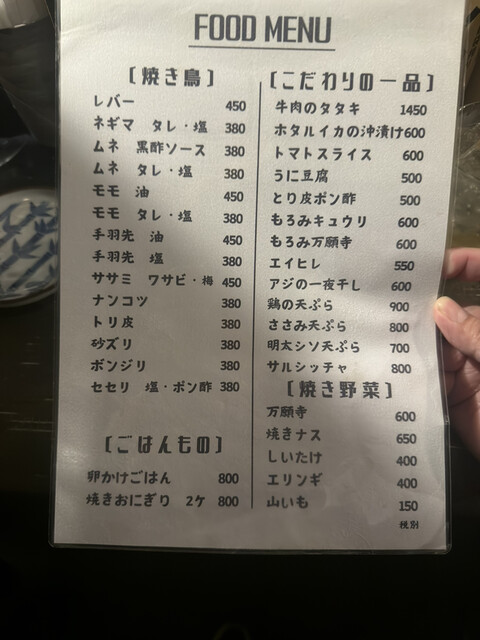 FOOD MENU
[焼き鳥]
レバー 450
ネギマ タレ・塩 380
ムネ 黒酢ソース 380
ムネ タレ・塩 380
モモ 油 450
モモ タレ・塩 380
手羽先 油 450
手羽先 塩 380
ササミ ワサビ・梅 450
ナンコツ 380
トリ皮 380
砂ズリ 380
ボンジリ 380
セセリ 塩・ポン酢 380
[ごはんもの]
卵かけごはん 800
焼きおにぎり 2ケ 800
[こだわりの一品]
牛肉のタタキ 1450
ホタルイカの沖漬け 600
トマトスライス 600
うに豆腐 500
とり皮ポン酢 500
もろみキュウリ 600
もろみ万願寺 600
エイヒレ 550
アジの一夜干し 600
鶏の天ぷら 900
ささみ天ぷら 800
明太シソ天ぷら 700
サルシッチャ 800
[焼き野菜]
万願寺 600
焼きナス 650
しいたけ 400
エリンギ 400
山いも 150
税別